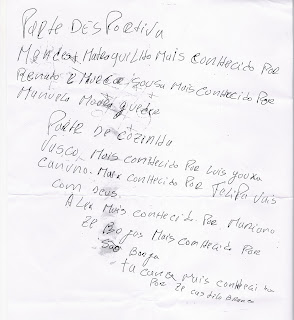 PARTE DESPORTIVA
Mendes Matraquilho Mais conhecido Por
Renato e Sousa Mais conhecido Por
Manuela Moura guedes
PARTE DE COZINHA
Vasco Mais conhecido Por Luis
canino Mais conhecido Por Felipa Vais
com Deus.
Mais conhecido Por Mariano
Zé Mais conhecido Por
São Banza
Mais conheci
Por Zé castelo Branco